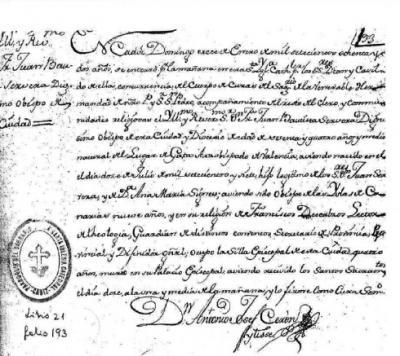 193
Ill.mo y Rev.mo
Sr. Dn. Fr. Juan Bau
ta Servera Dig.mo
Obispo de esta
Ciudad
En Cadiz Domingo trece de Enero de mil setecientos ochenta y
dos años, se enterró por la mañana en esta Sta. Ygla. Cath. por los SS. Dean y Cavildo
de ella, con asistencia del Cuerpo de Curas del la Venerable Her
mandad de N. P. S. Pedro, acompañamiento de todo el Clero, y Commu
nidades religiosas el Yll. y Rever. Sr. Dn. Fr. Juan Bautista Servera Dig.mo
Obispo de esta Ciudad y Diocesis de edad de setenta y quatro años y medio
natural del Lugar de Arzobispado de Valencia, aviendo nacido en el
el dia doce de Julio de mil setecientos y siete, hijo legitimo de los SS. Dn. Juan Ser
vera, y Da. Ana Maria aviendo sido Obispo de las Yslas de Ca
narias nueve años, y en su religion de Sn. Francisco Descalzos Lector
de Theologia, Guardian de distintos conventos, Secretario de Provincia, Pro
vincial y Difinidor gral, ocupó la Silla Episcopal de esta Ciudad quatro
años, murió en su Palacio Episcopal aviendo recivido los Santos Sacramen.
el dia doce, a la una y media de la mañana, y lo firmé como Cura Sem.
Dn. Antonio Jose Ceron
Libro 21
folio 193